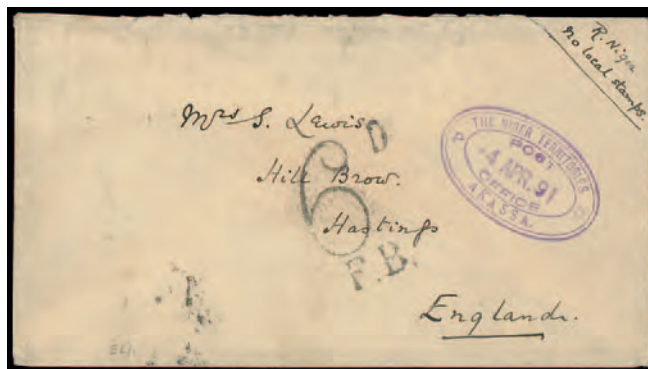 R. Niger
no local stamps.
Mrs S. Lewis
Hill Brow.
Hastings
England.
6D
F.B.
THE NIGER TERRITORIES
POST
4 APR. 91
OFFICE
AKASSA.